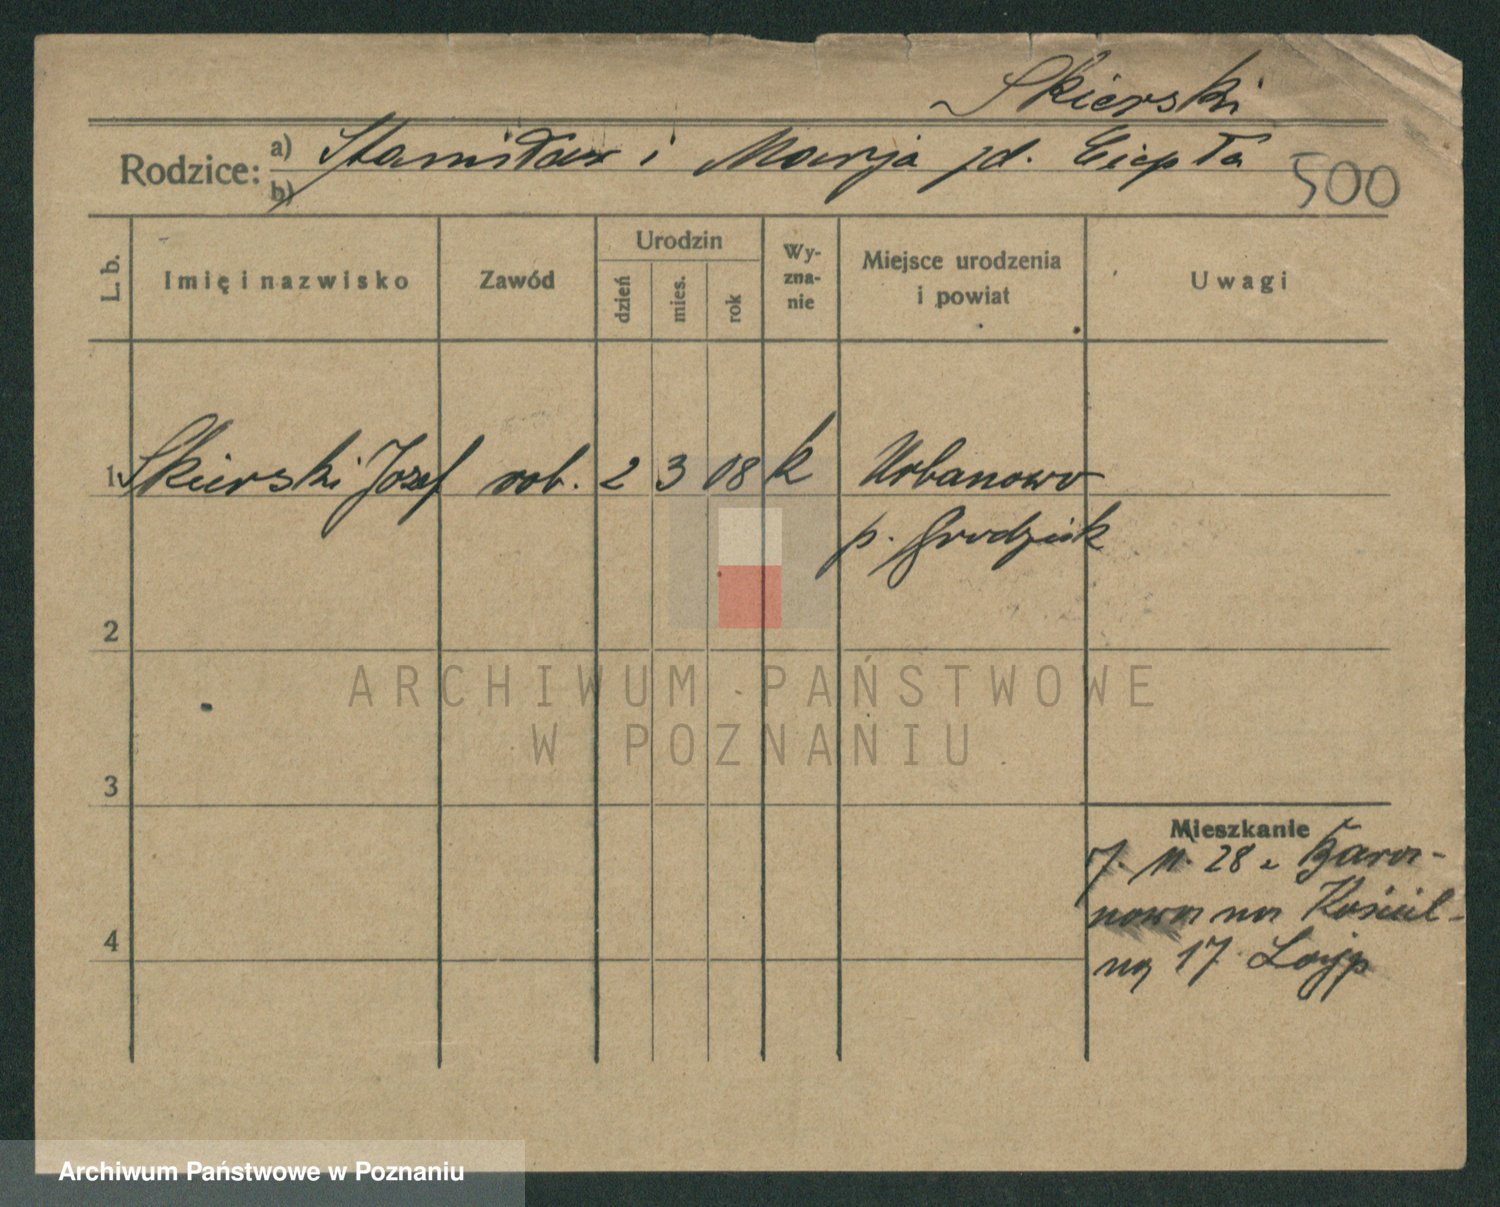 Skierski
Rodzice: a) Stanisław i Marja zd. Ciepła
b)
500
L. b.
Imię i nazwisko
Zawód
Urodzin
dzień
mies.
rok
Wy-
zna-
nie
Miejsce urodzenia
i powiat
Uwagi
1 Skierski Józef rob. 2 3 08 k Urbanowo
p. Grodzisk
2
ARCHIWUM PAŃSTWOWE
W POZNANIU
3
Mieszkanie
28
na Kościel-
ną 17
4
Archiwum Państwowe w Poznaniu